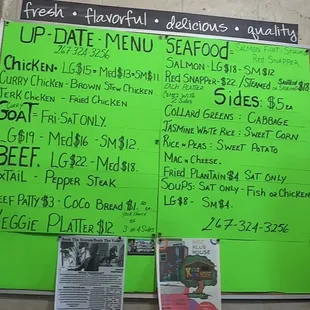 fresh • flavorful • delicious • quality
UP-DATE-MENU
267-324-3256
CHICKEN. LG$15• MED$13•SM$11
CURRY CHICKEN - BROWN STEW CHICKEN
JERK CHICKEN - FRIED CHICKEN
GOAT- FRI-SAT ONLY.
LG$19 - MED$16 - SM$12.
BEEF. LG$22 - MED$18.
OXTAIL - PEPPER STEAK
BEEF PATTY $3 - COCO BREAD $1.
VEGGIE PLATTER $12.
SEAFOOD
SALMON
RED SNAPPER
SALMON LG$18 - SM $12
RED SNAPPER - $22. STEAMED
EACH PLATTER
2 SIDES
SIDES: $5 EA
COLLARD GREENS : CABBAGE
JASMINE WHITE RICE : SWEET CORN
RICE N PEAS : SWEET POTATO
MAC N CHEESE.
FRIED PLANTAIN $4 SAT ONLY
SOUPS: SAT ONLY - FISH OR CHICKEN
LG$8 - SM$4.
267-324-3256
KLUB
HOUSE